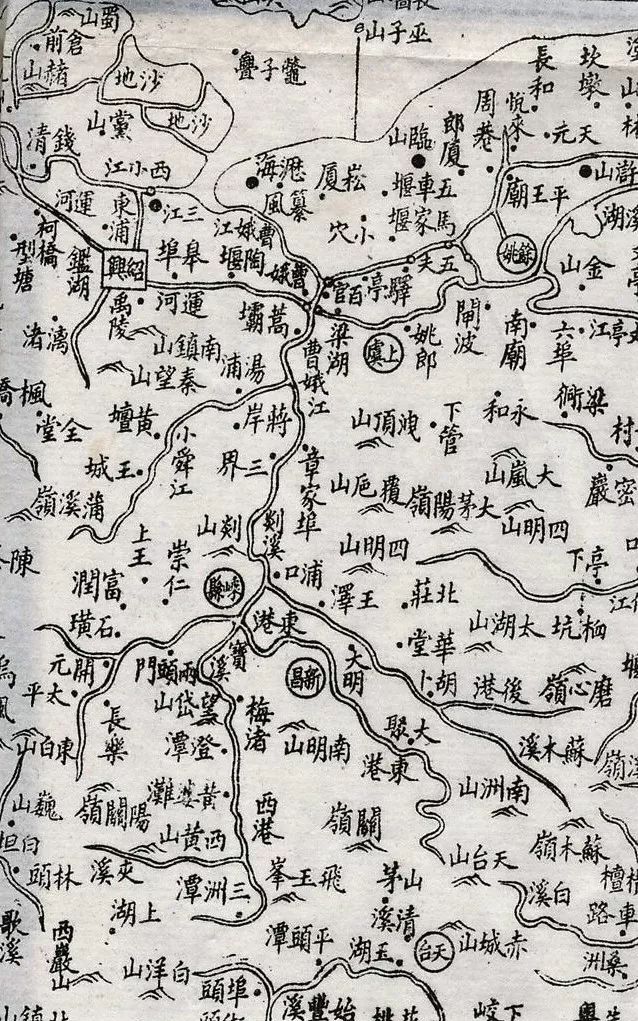 蜀山
倉前
赭山
沙地
沙地
黨山
巫子山
鼈子亹
錢清
西小江
運河
東浦
三江
柯橋
型塘
鑑湖
紹興
皋埠
陶堰
曹娥江
曹娥
瀝海
纂風
崧廈
臨山
郎廈
周巷
悅來
長和
坎墩
天元
五車堰
馬家堰
小穴
平王廟
滸山
餘姚
金山
五夫
驛亭
百官
禹陵
運河
蒿壩
梁湖
上虞
姚郎
閘波
南廟
六埠
漓渚
南鎮山
秦望山
湯浦
曹娥江
楓橋
全堂
黃壇
王城
小舜江
蔣岸
三界
章家埠
洩頂山
下管
永和
梁衕
大嵐山
密巖
蒲溪嶺
上王
崇仁
剡山
剡溪
覆卮山
大茅陽嶺
四明山
四明山
下亭
富潤
嵊縣
浦口
王澤
北莊
太湖山
柏坑
石璜
東港
華堂
開元
太平
兩頭門
寶溪
新昌
大明
胡卜
後港
磨心嶺
長樂
東白山
望岱山
澄潭
梅渚
南明山
大聚
東港
蘇木溪
巍山
陽關嶺
黃婆灘
西港
關嶺
南洲山
白坦
西黃山
天台山
蘇木嶺
林頭
夾溪
三洲潭
王飛峯
茅山
白溪
上湖
清溪
歌溪
西巖山
白洋山
平頭潭
玉湖
天台
赤城山
桑洲
埠頭
始豐溪